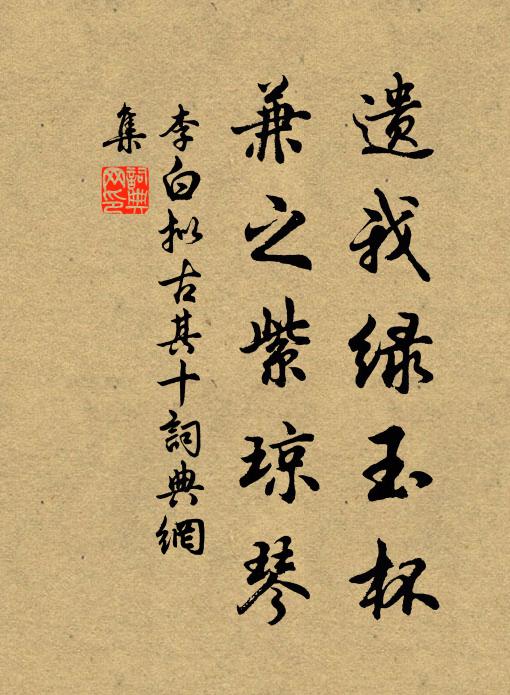 遗我绿玉杯
兼之紫琼琴
李白拟古其十詞典網
集
詞典网印